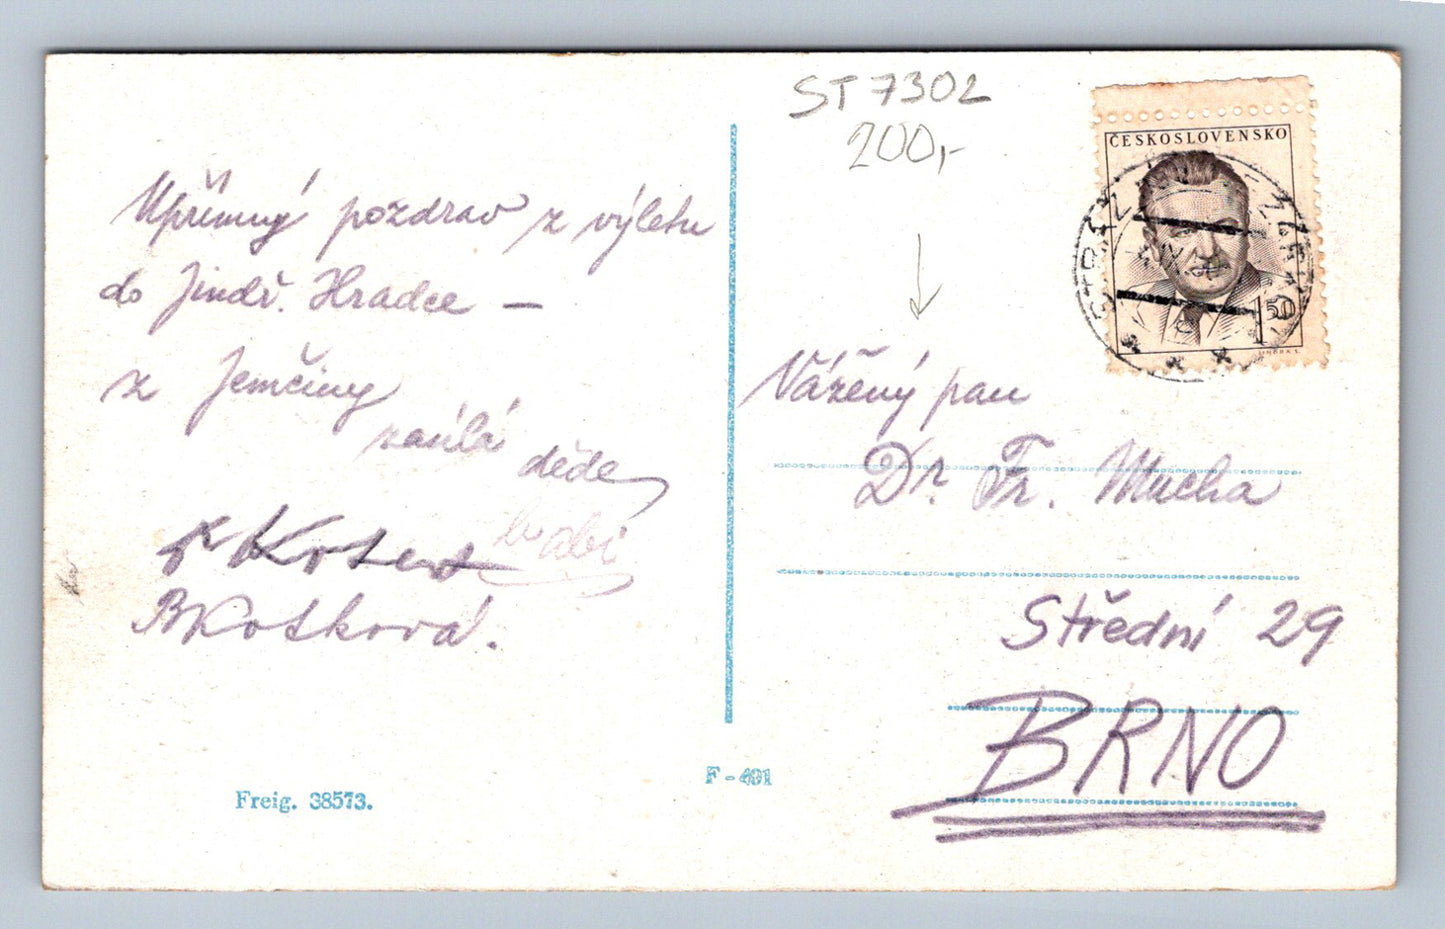 Upřímný pozdrav z výletu
do Jindř. Hradce —
z Jemčiny
zasílá děde
babi
BKotková.
Freig. 38573.
F - 491
ST 7302
200,-
ČESKOSLOVENSKO
1 50
Vážený pan
Dr. Fr. Mucha
Střední 29
BRNO